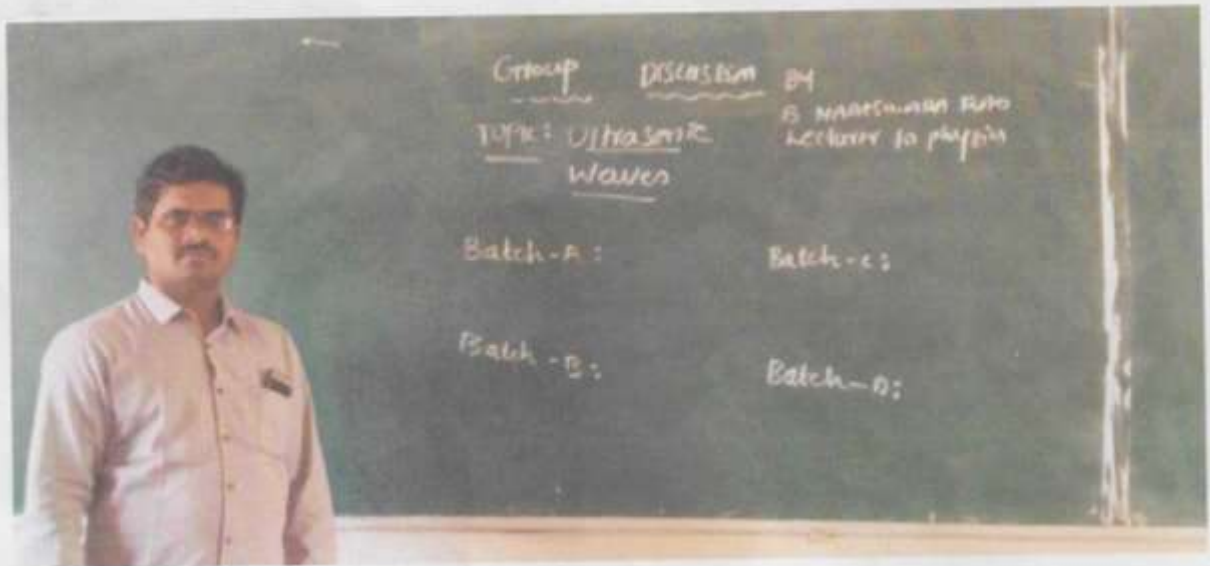 Group Discussion By
Lecturer in physics
Topic: Ultrasonic
Waves
Batch-A:
Batch-C:
Batch-B:
Batch-D: